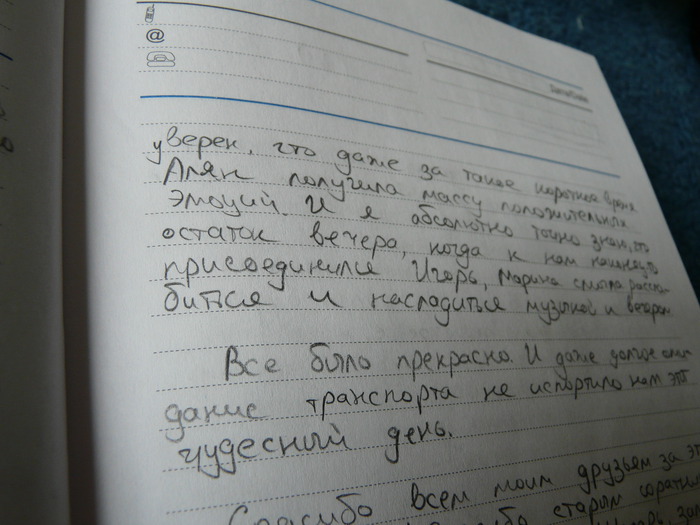 @
уверен, что даже за такое короткое время
Алян получила массу положительных
эмоций. И я абсолютно точно знаю, что
остаток вечера, когда к нам
присоединился Игорь, Марина смогла рассла-
биться и насладиться музыкой и вечером
Все было прекрасно. И даже долгое ожи-
дание транспорта не испортило нам этот
чудесный день.
Спасибо всем моим друзьям за эт
старым